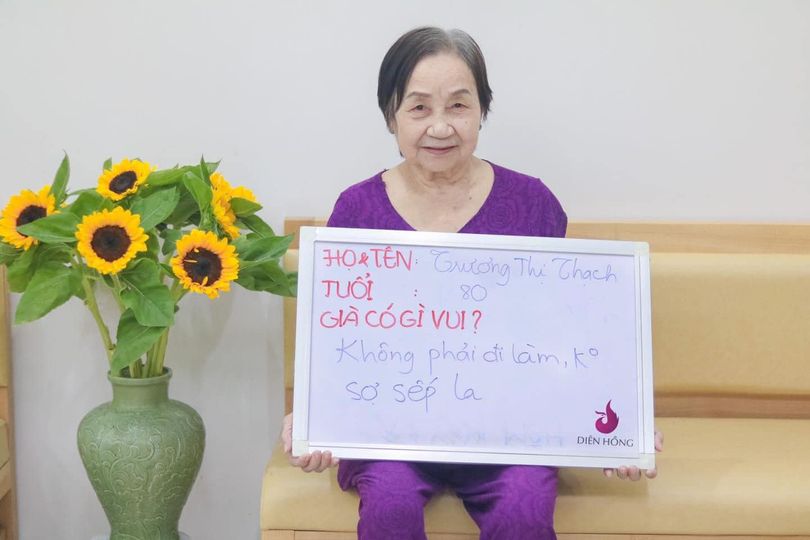 HỌ & TÊN: Trương Thị Thạch
TUỔI : 80
GIÀ CÓ GÌ VUI?
Không phải đi làm, kº
sợ sếp la
DIÊN HỒNG